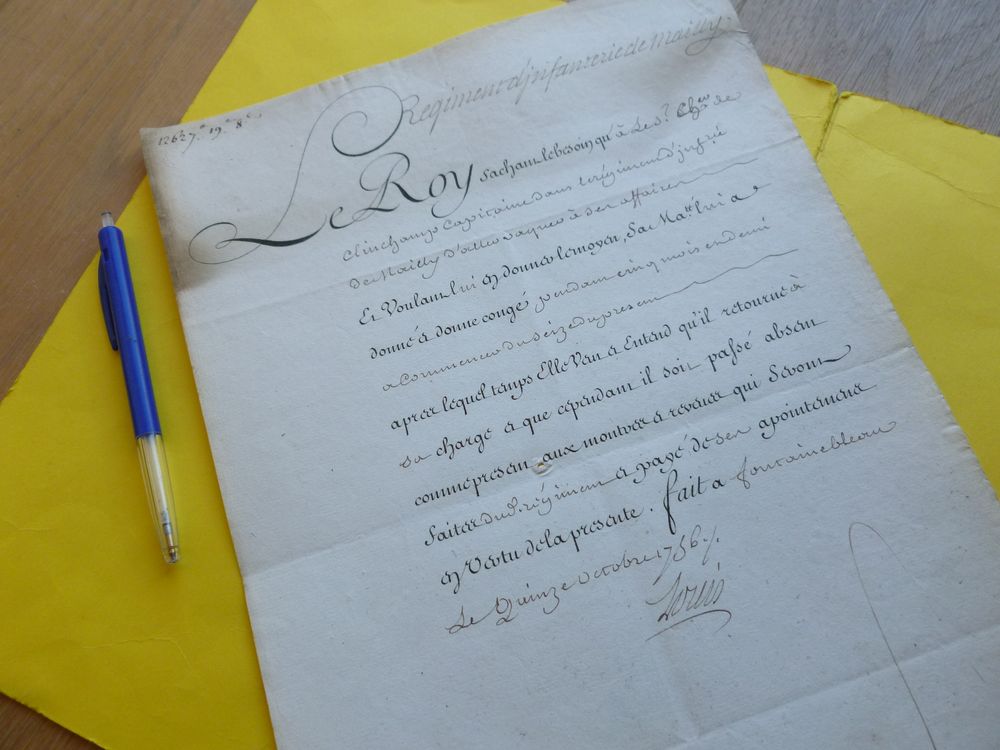 Regiment d'jnfanterie de Mailly
Le Roy sachant le besoin qu'à Le Sr. Cher. de
Capitaine dans le régiment d'jnfrie
de Mailly d'aller vaquer à ses affaires
Et Voulant lui en donner le moyen, Sa Maté. lui a
donné et donne congé pendant cinq mois en demi
a commencer du séize du present
aprés lequel temps Elle Veut et Entend qu'il retourne à
sa charge et que cépendant il soit passé absent
comme present aux montres et reveues qui Seront
faites dud. régiment et payé de ses apointemens
en Vertu de la presente. fait a fontainebleau
Le Quinze Octobre 1756 ./.
Louis